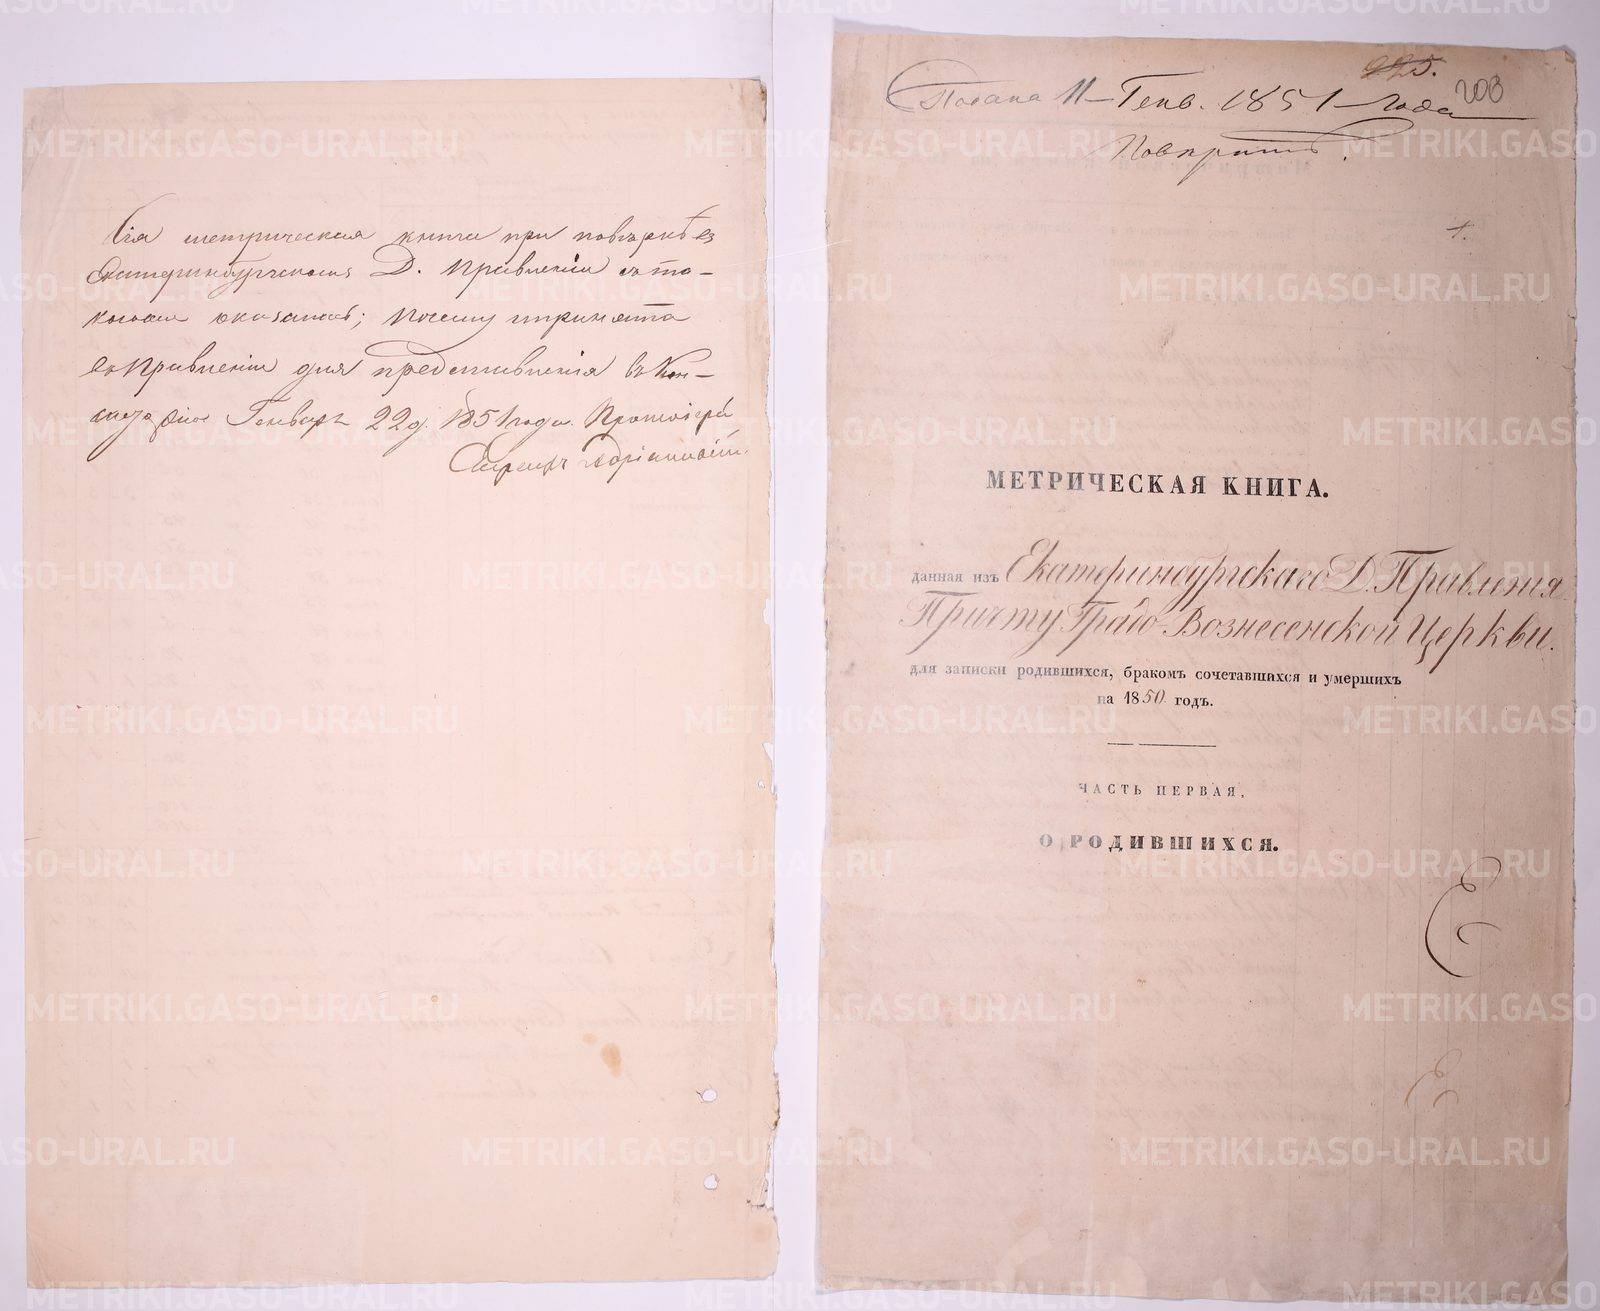 Сія метрическая книга при повѣркѣ въ
Екатеринбургскомъ Д. Правленіи съ та-
ковою оказалась; почему принята
въ Правленіи для представленія въ Кон-
систорію Генваря 22 д. 1851 года. Протоіерей
225.
208
Подана 11 Генв. 1851 года
Повѣрить.
МЕТРИЧЕСКАЯ КНИГА.
данная изъ Екатеринбургскаго Д. Правленія
Причту Градо-Вознесенской Церкви.
для записки родившихся, бракомъ сочетавшихся и умершихъ
на 1850 годъ.
ЧАСТЬ ПЕРВАЯ,
О РОДИВШИХСЯ.
METRIKI.GASO-URAL.RU